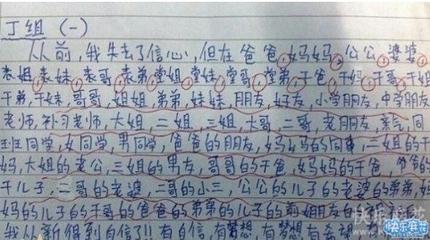 丁组 (一)
从前,我失去了信心,但在爸爸,妈妈,公公,婆婆
表姐,表妹,表哥,表弟,堂姐,堂妹,堂哥,堂弟,干爸,干妈,干哥,干姐
干弟,干妹,哥哥,姐姐,弟弟,妹妹,朋友,好友,小学朋友,中学朋友
老师,补习老师,大姐,二姐,三姐,大哥,二哥,老朋友,亲,同
班同学,女同学,男同学,爸爸的朋友,妈妈的同事,二姐的干
妈,大姐的老公,三姐的男友,哥哥的干爸,妈妈的干爸,爸爸的
干儿子,二哥的老婆,二哥的小三,公公的儿子的老婆的弟弟,
妈的儿子的干哥的爸爸的弟弟的儿子的前姐
我从新得到自信了!!有自信,有梦想,有
快乐麻花